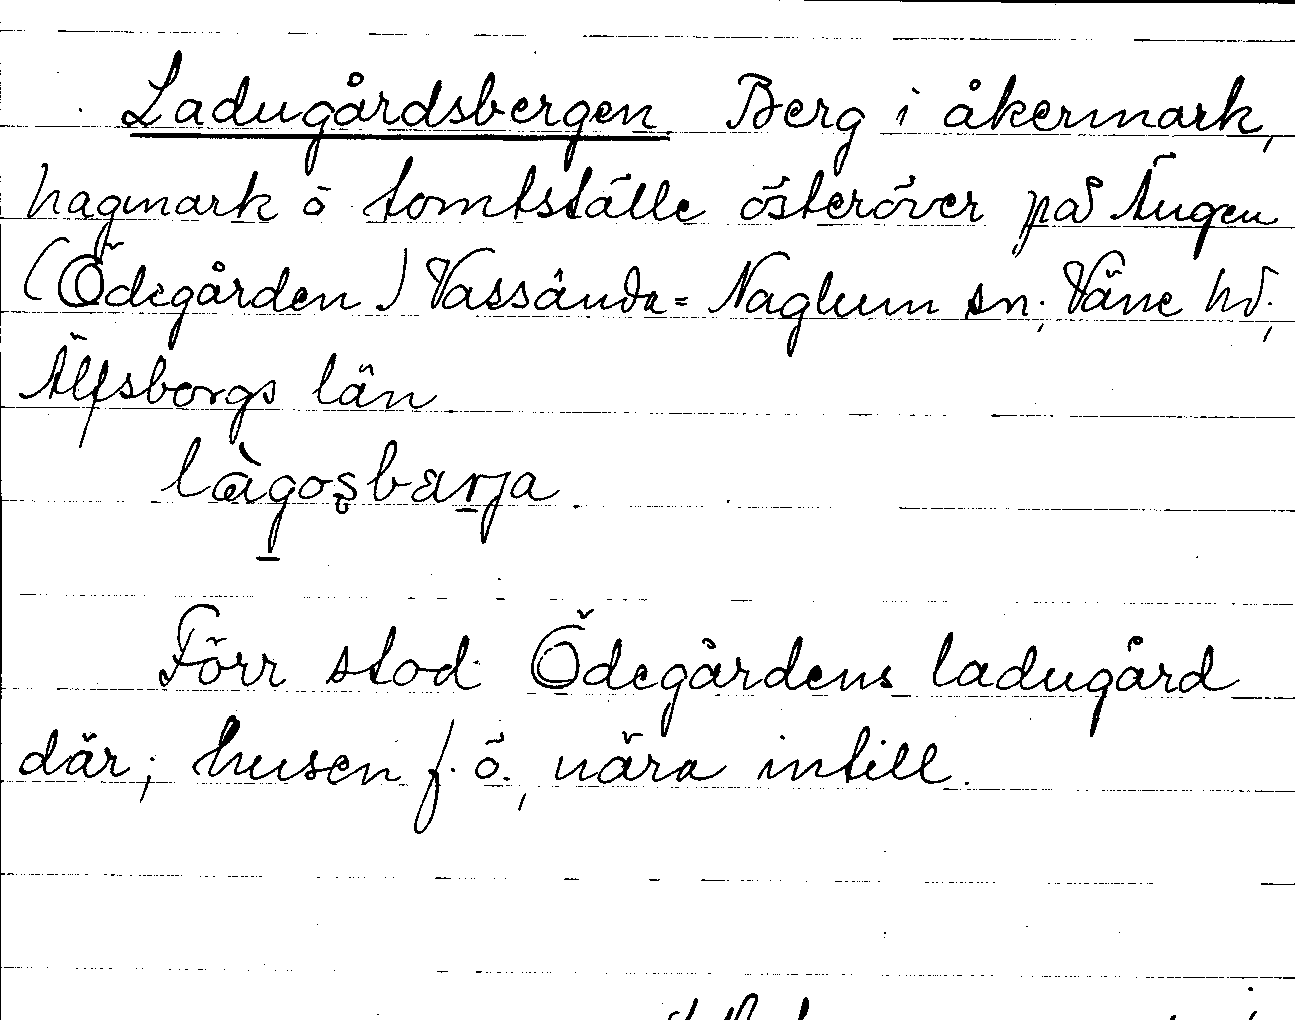 Ladugårdsbergen Berg i åkermark,
hagmark o tomtställe österöver på Ängen
(Ödegården) Vassända-Naglum sn; Väne hd;
Älfsborgs län
làgosbarja
Förr stod Ödegårdens ladugård
där; husen f. ö., nära intill.